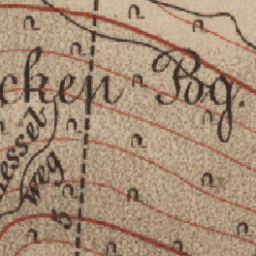 cken Pog.
essel
weg